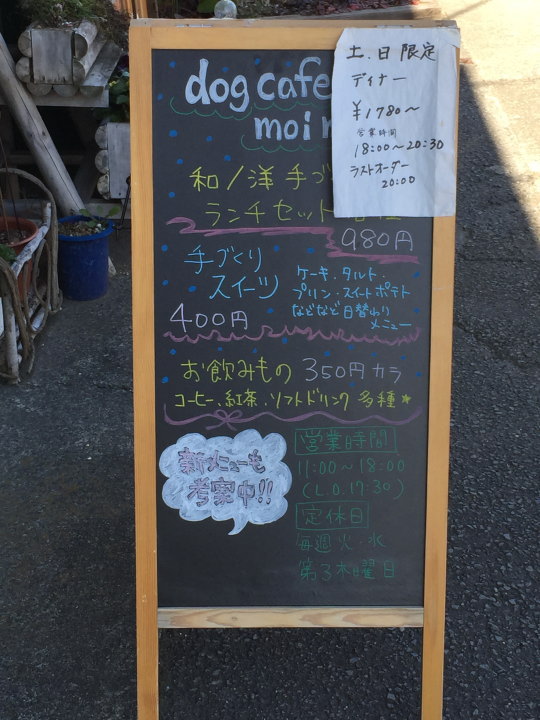 dog cafe
moi
和/洋 手づ
ランチセット
980円
手づくり
スイーツ
ケーキ、タルト、
プリン・スイートポテト
などなど日替わり
メニュー
400円
お飲みもの 350円カラ
コーヒー、紅茶、ソフトドリンク 多種★
新メニューも
考案中!!
営業時間
11:00～18:00
(L.O.17:30)
定休日
毎週火・水
第3木曜日
土、日限定
ディナー
¥1780～
営業時間
18:00～20:30
ラストオーダー
20:00